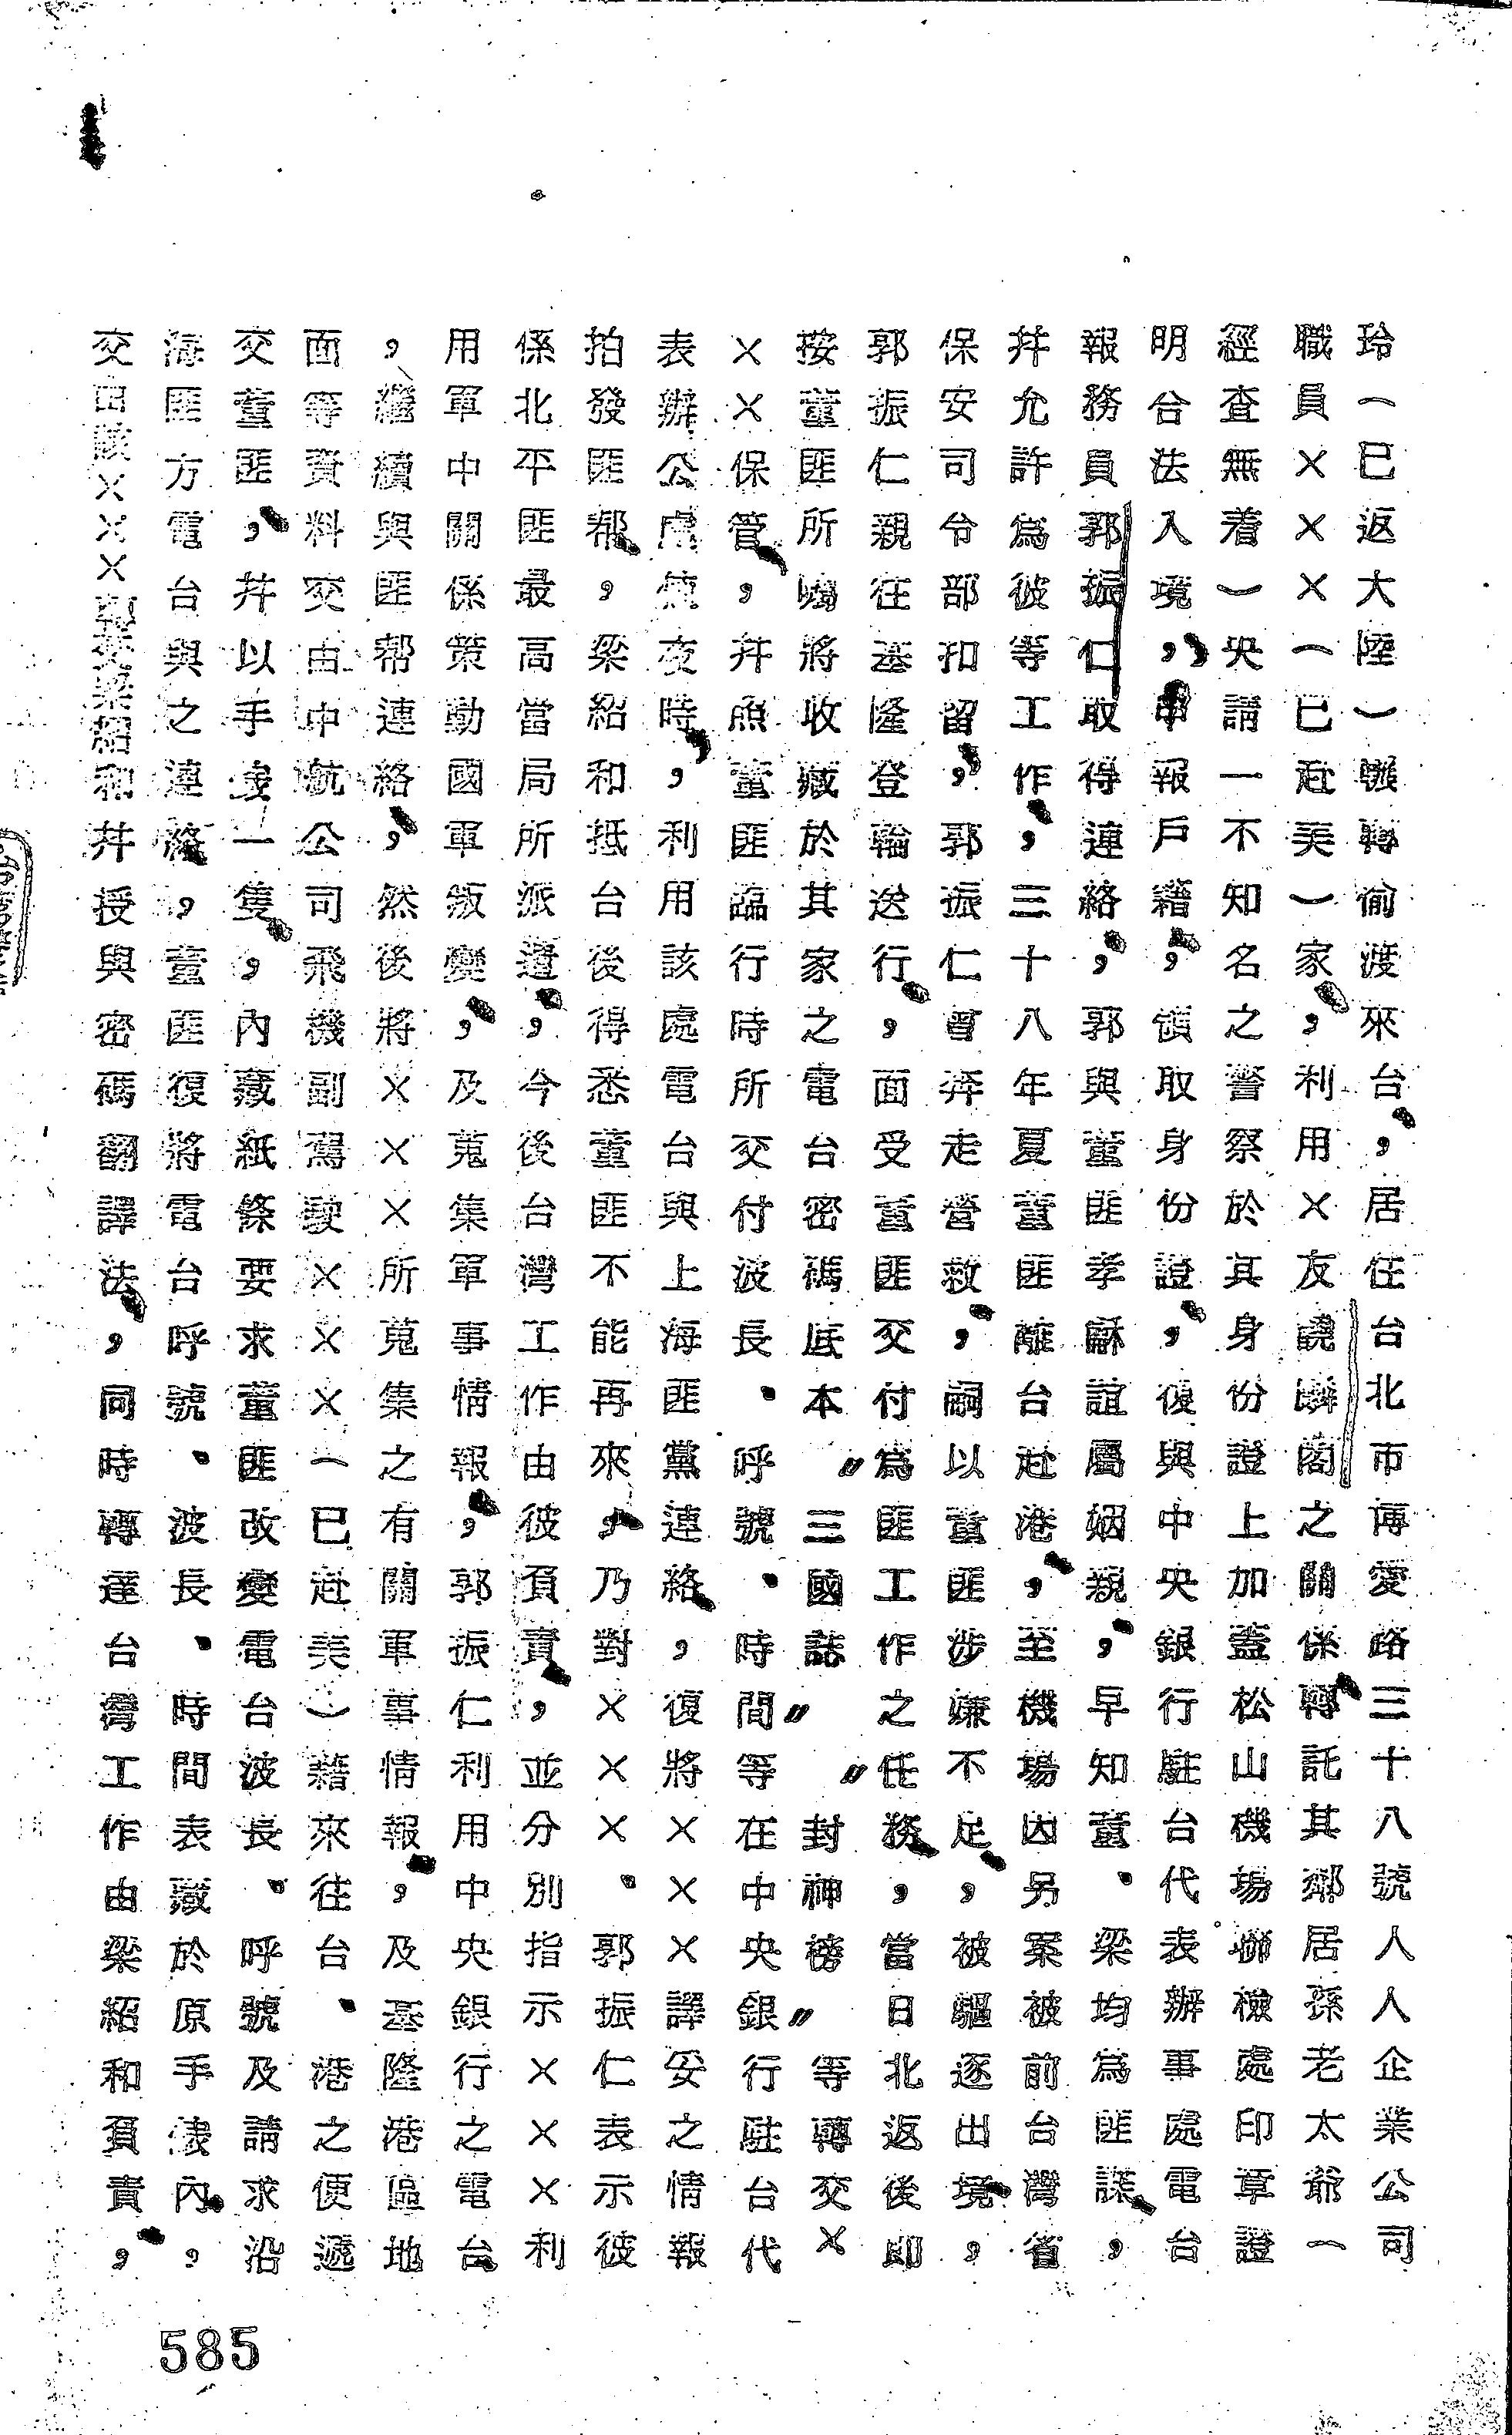 玲（已返大陸）輾轉偷渡來台，居住台北市博愛路三十八號人人企業公司
職員×××（已赴美）家，利用×友饒麟閣之關係轉託其鄰居孫老太爺（
經查無着）央請一不知名之警察於其身份證上加蓋松山機場聯檢處印章證
明合法入境，申報戶籍，領取身份證，復與中央銀行駐台代表辦事處電台
報務員郭振仁取得連絡，郭與董匪孝穌誼屬姻親，早知董、梁均為匪諜，
并允許為彼等工作，三十八年夏董匪離台赴港，至機場因另案被前台灣省
保安司令部扣留，郭振仁曾奔走營救，嗣以董匪涉嫌不足，被驅出境，
郭振仁親往基隆登輪送行，面受董匪交付為匪工作之任務，當日北返後即
按董匪所囑將收藏於其家之電台密碼底本〃三國誌〃〃封神榜〃等轉交×
××保管，并照董匪臨行時所交付波長、呼號、時間等在中央銀行駐台代
表辦公處，夜時，利用該處電台與上海匪黨連絡，復將×××譯妥之情報
拍發匪幫，梁紹和抵台後得悉董匪不能再來，乃對×××、郭振仁表示彼
係北平匪最高當局所派遣，今後台灣工作由彼負責，並分別指示×××利
用軍中關係策動國軍叛變，及蒐集軍事情報，郭振仁利用中央銀行之電台
，繼續與匪幫連絡，然後將×××所蒐集之有關軍事情報，及基隆港區地
面等資料交由中航公司飛機副駕駛×××（已赴美）藉來往台、港之便遞
交董匪，并以手錶一隻，內藏紙條要求董匪改變電台波長、呼號及請求沿
海匪方電台與之連絡，董匪復將電台呼號、波長、時間表藏於原手錶內，
交由該×××郭交梁紹和并授與密碼翻譯法，同時轉達台灣工作由梁紹和負責，
585